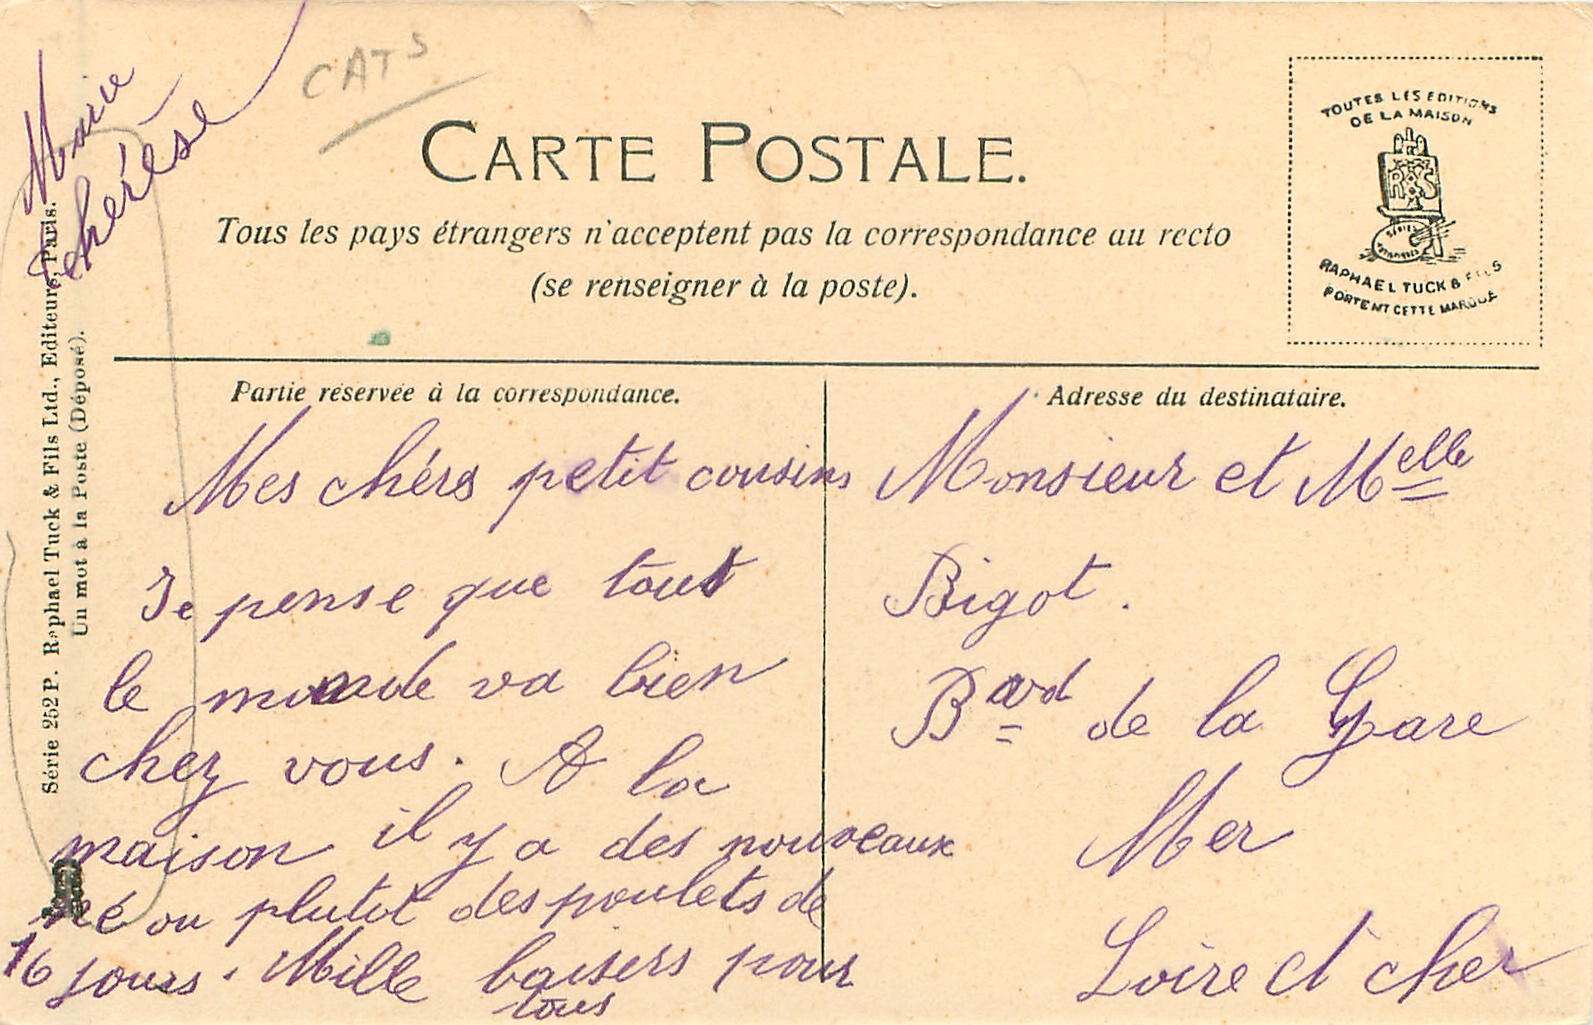 CATS
CARTE POSTALE.
Tous les pays étrangers n'acceptent pas la correspondance au recto
(se renseigner à la poste).
TOUTES LES EDITIONS
DE LA MAISON
RAPHAEL TUCK & FILS
PORTENT CETTE MARQUE
Partie réservée à la correspondance.
Mes chérs petit cousins
Je pense que tout
le monde va bien
chez vous. A la
maison il y a des nouveaux
né ou plutot des poulets de
16 jours. Mille baisers pour
tous
Marie
thérèse
Adresse du destinataire.
Monsieur et Melle
Bigot.
Bard de la Gare
Mer
Loire et cher
Série 252 P. Raphael Tuck & Fils Ltd., Editeurs, Paris.
Un mot à la Poste (Déposé).